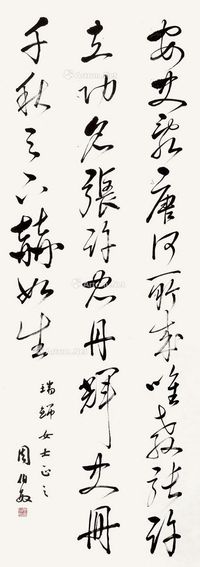 安史亂唐何所成唯教張許
立功名張許忠丹輝史冊
千秋之下赫如生
瑞女士正之
周伯敏